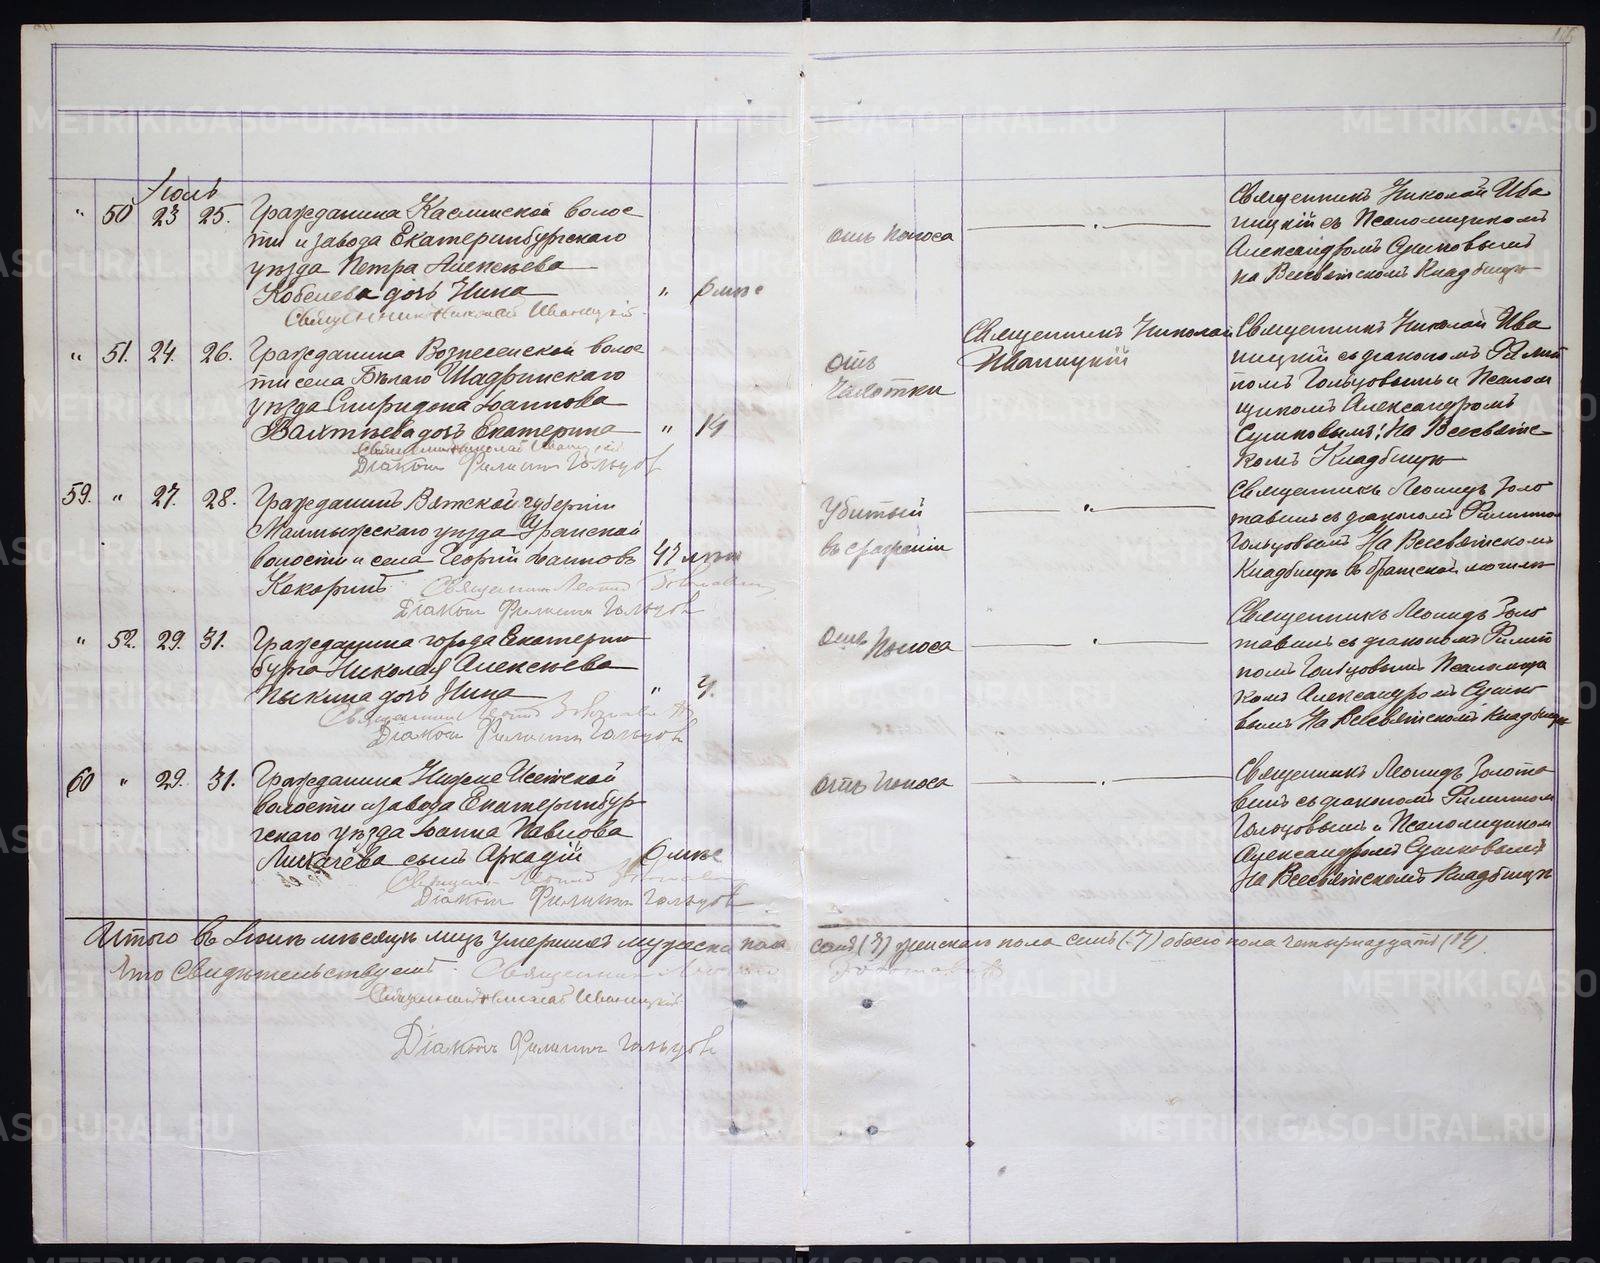 Іюль
" 50 23 25. Гражданина Каслинской волос
ти и завода Екатеринбургскаго
уѣзда Петра Алексѣева
Кобелева дочь Нина " 6 мѣс
Священникъ Николай Иваницкій
отъ поноса
Священникъ Николай Ива
ницкій съ Псаломщикомъ
Александромъ
на Всесвятскомъ Кладбищѣ
" 51. 24. 26. Гражданина Вознесенской волос
ти села Бѣлаго Шадринскаго
уѣзда Спиридона Іоаннова
дочь Екатерина " 14
Священникъ Николай Иваницкій
Діаконъ Филиппъ Гольцов
отъ
Чахотки
Священникъ Николай
Иваницкій
Священникъ Николай Ива
ницкій съ діакономъ Филип
помъ Гольцовымъ и Псалом
щикомъ Александромъ
На Всесвятс
комъ Кладбищѣ
59. " 27. 28. Гражданинъ Вятской губерніи
Малмыжскаго уѣзда
волости и села Георгій Іоанновъ 42 лѣтъ
Кокоринъ Священникъ Леонид
Діаконъ Филиппъ Гольцов
Убитый
въ сраженіи
Священникъ Леонидъ Золо
тавинъ съ діакономъ Филиппом
Гольцовымъ На Всесвятскомъ
Кладбищѣ въ братской могилѣ
" 52. 29. 31. Гражданина города Екатерин
бурга Николая Алексѣева
дочь Нина " 4.
Священник Леонид
Діаконъ Филиппъ Гольцов
отъ поноса
Священникъ Леонидъ Золо
тавинъ съ діакономъ Филип
помъ Гольцовымъ Псаломщи
комъ Александромъ
вымъ На Всесвятскомъ Кладбищѣ
60 " 29. 31. Гражданина Нижне Исетской
волости и завода Екатеринбур
гскаго уѣзда Іоанна Павлова
Лихачева сынъ Аркадій 6 мѣс
Священ. Леонид
Діаконъ Филиппъ Гольцов
отъ поноса
Священникъ Леонидъ Золота
винъ съ діакономъ Филиппом
Гольцовымъ и Псаломщиком
Александромъ
На Всесвятскомъ Кладбищѣ
Итого въ Іюлѣ мѣсяцѣ лицъ умершихъ мужеска пола семь (7) женскаго пола семь (7) обоего пола четырнадцать (14)
Что Свидѣтельствуемъ. Священник Леонид Золотавин
Священникъ Николай Иваницкій
Діаконъ Филиппъ Гольцов
METRIKI.GASO-URAL.RU